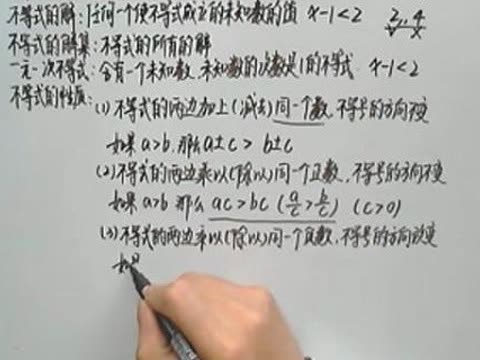 不等式的解:任何一个使不等式成立的未知数的值 x-1<2 2, 4
不等式的解集:不等式的所有的解
一元一次不等式:含有一个未知数,未知数的次数是1的不等式 x-1<2
不等式的性质:(1)不等式的两边加上(减去)同一个数,不等号的方向不变
如果a>b,那么a±c > b±c
(2)不等式的两边乘以(除以)同一个正数,不等号的方向不变
如果a>b 那么 ac>bc (a/c>b/c) (c>0)
(3)不等式的两边乘以(除以)同一个负数,不等号的方向改变
如